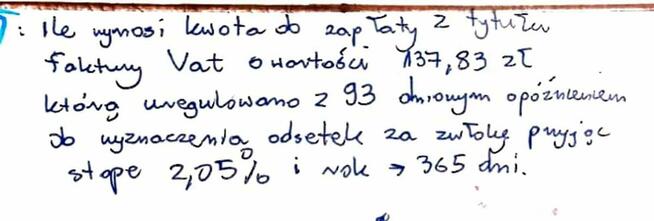 : Ile wynosi kwota do zapłaty z tytułu
faktury Vat o wartości 137,83 zł
którą uregulowano z 93 dniowym opóźnieniem
do wyznaczenia odsetek za zwłokę przyjąc
stopę 2,05% i rok → 365 dni.